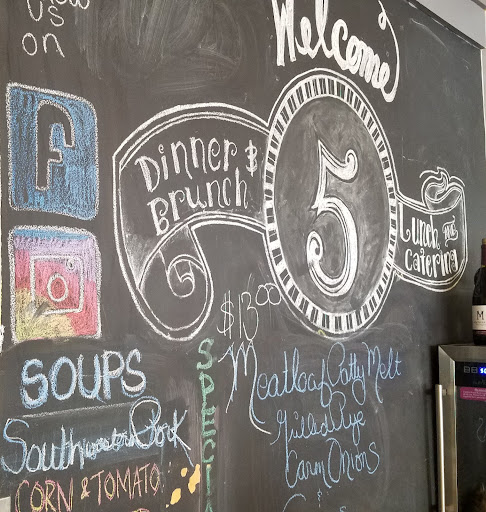 us
on
Welcome
Dinner &
Brunch
5
Lunch and
Catering
$13.00
SPECIA
Meatloaf Patty Melt
Grilled Rye
Carm Onions
&
SOUPS
Southwestern Pork
CORN & TOMATO